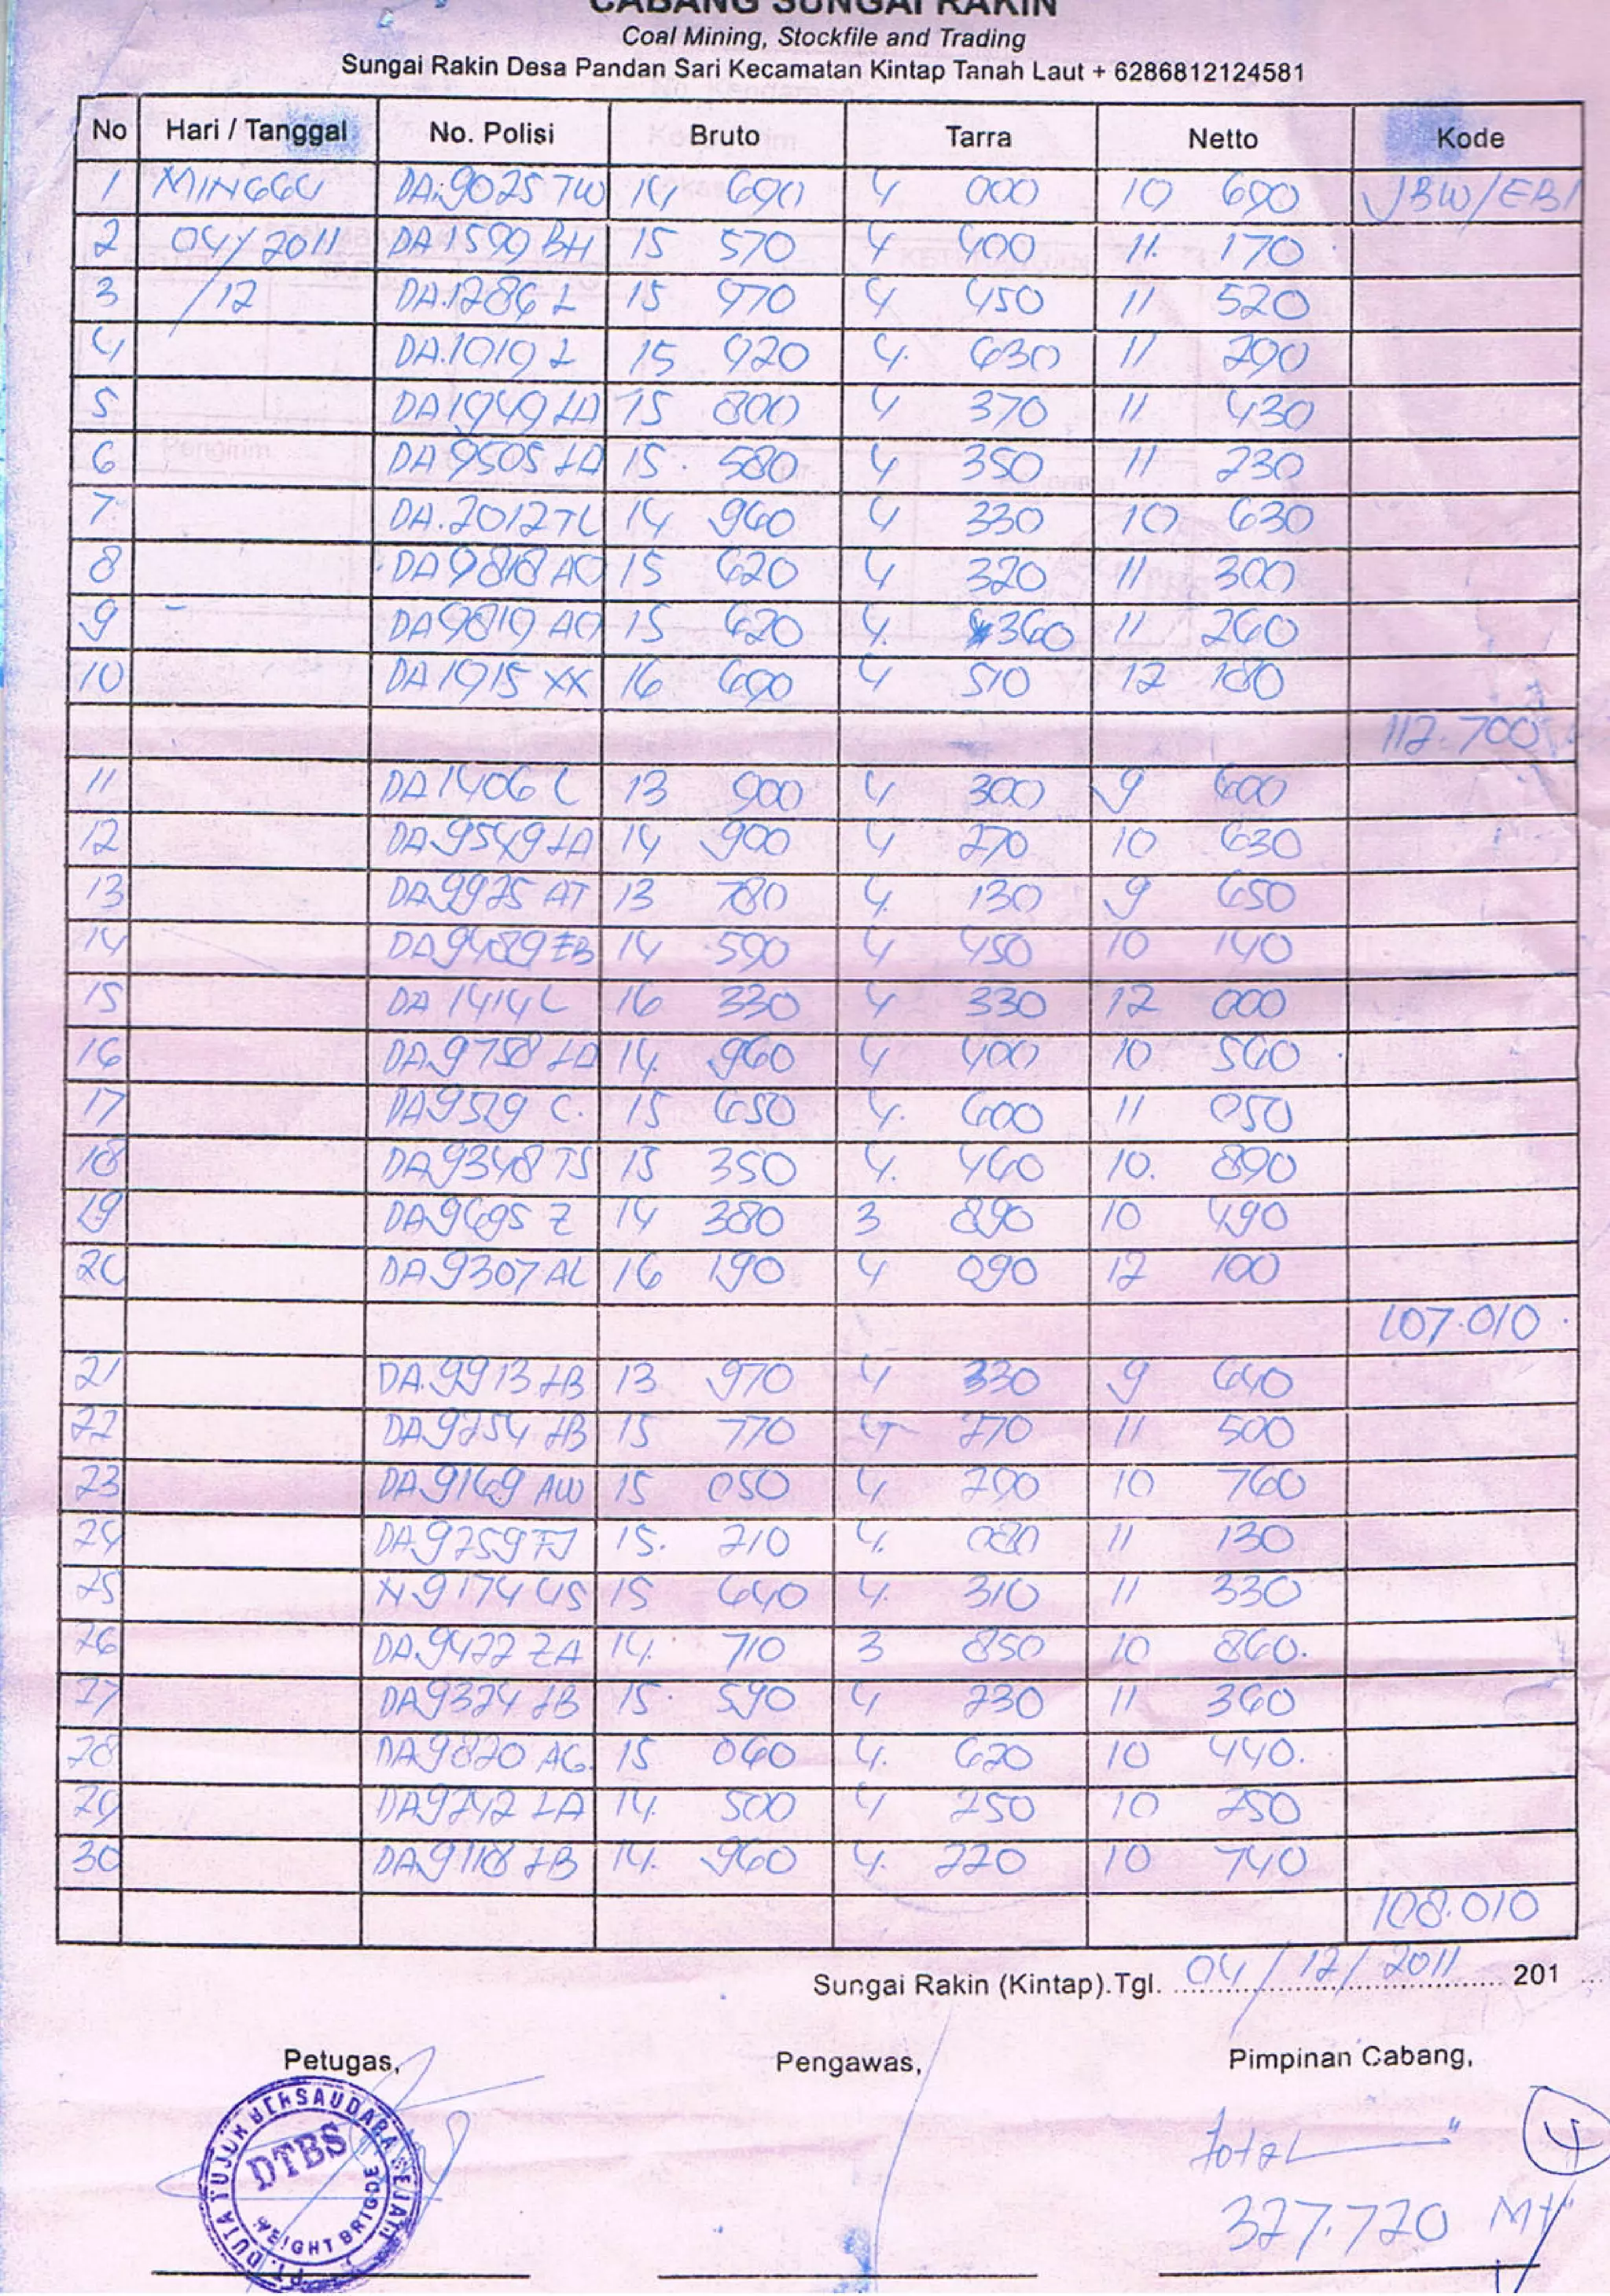 CABANG SUNGAI RAKIN
Coal Mining, Stockfile and Trading
Sungai Rakin Desa Pandan Sari Kecamatan Kintap Tanah Laut + 6286812124581
No Hari / Tanggal No. Polisi Bruto Tarra Netto Kode
1 MINGGU DA.9025 TW 14 690 4 000 10 690 JBW/EBI
2 04/2011 DA 1599 BH 15 570 4 400 11. 170
3 /12 DA.1286 L 15 970 4 450 11 520
4 DA.1019 L 15 920 4. 630 11 290
5 DA 1949 LA 15 800 4 370 11 430
6 DA 9505 LA 15. 580 4 350 11 230
7 DA.2012 TL 14 960 4 330 10 630
8 DA 9818 AO 15 620 4 320 11 300
9 - DA 9819 AO 15 620 4. 360 11 260
10 DA 1915 XX 16 690 4 510 12 180
112.700
11 DA 1406 C 13 900 4 300 9 600
12 DA.9549 LA 14 900 4 270 10 630
13 DA.9925 AT 13 780 4. 130 9 650
14 DA 9489 EB 14 590 4 450 10 140
15 DA 1414 L 16 330 4 330 12 000
16 DA.9758 LA 14. 960 4 400 10 560
17 DA 9529 C. 15 650 4. 600 11 050
18 DA.9348 TS 15 350 4. 460 10. 890
19 DA.9695 Z 14 380 3 890 10 490
20 DA 9307 AL 16 190 4 090 12 100
107.010
21 DA.9913 LB 13 970 4 330 9 640
22 DA.9254 LB 15 770 4 270 11 500
23 DA.9169 AW 15 050 4 290 10 760
24 DA.9259 FJ 15. 210 4. 080 11 130
25 N 9174 US 15 640 4. 310 11 330
26 DA.9422 ZA 14. 710 3 850 10 860.
27 DA 9324 LB 15. 590 4 230 11 360
28 DA 9820 AG. 15 060 4. 620 10 440.
29 DA 9242 LA 14. 500 4 250 10 250
30 DA.9118 LB 14. 960 4. 220 10 740
108.010
Sungai Rakin (Kintap).Tgl. 04/12/2011 201
Petugas, Pengawas, Pimpinan Cabang,
PT. DUTA TUJUH BERSAUDARA SEJATI
DTBS
WEIGHT BRIGDE
Total 4
327.720 MT